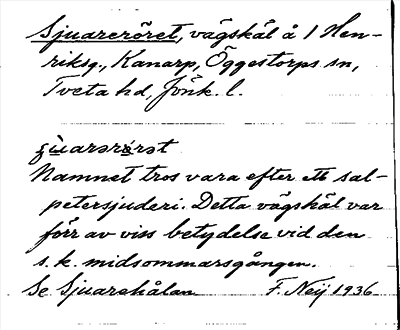 Sjuareröret, vägskäl å 1 Hen-
riksg., Kanarp, Öggestorps sn,
Tveta hd, Jönk. l.
Namnet tros vara efter ett sal-
petersjuderi. Detta vägskäl var
förr av viss betydelse vid den
s.k. midsommarsgången.
Se Sjuarehålan F. Neij 1936